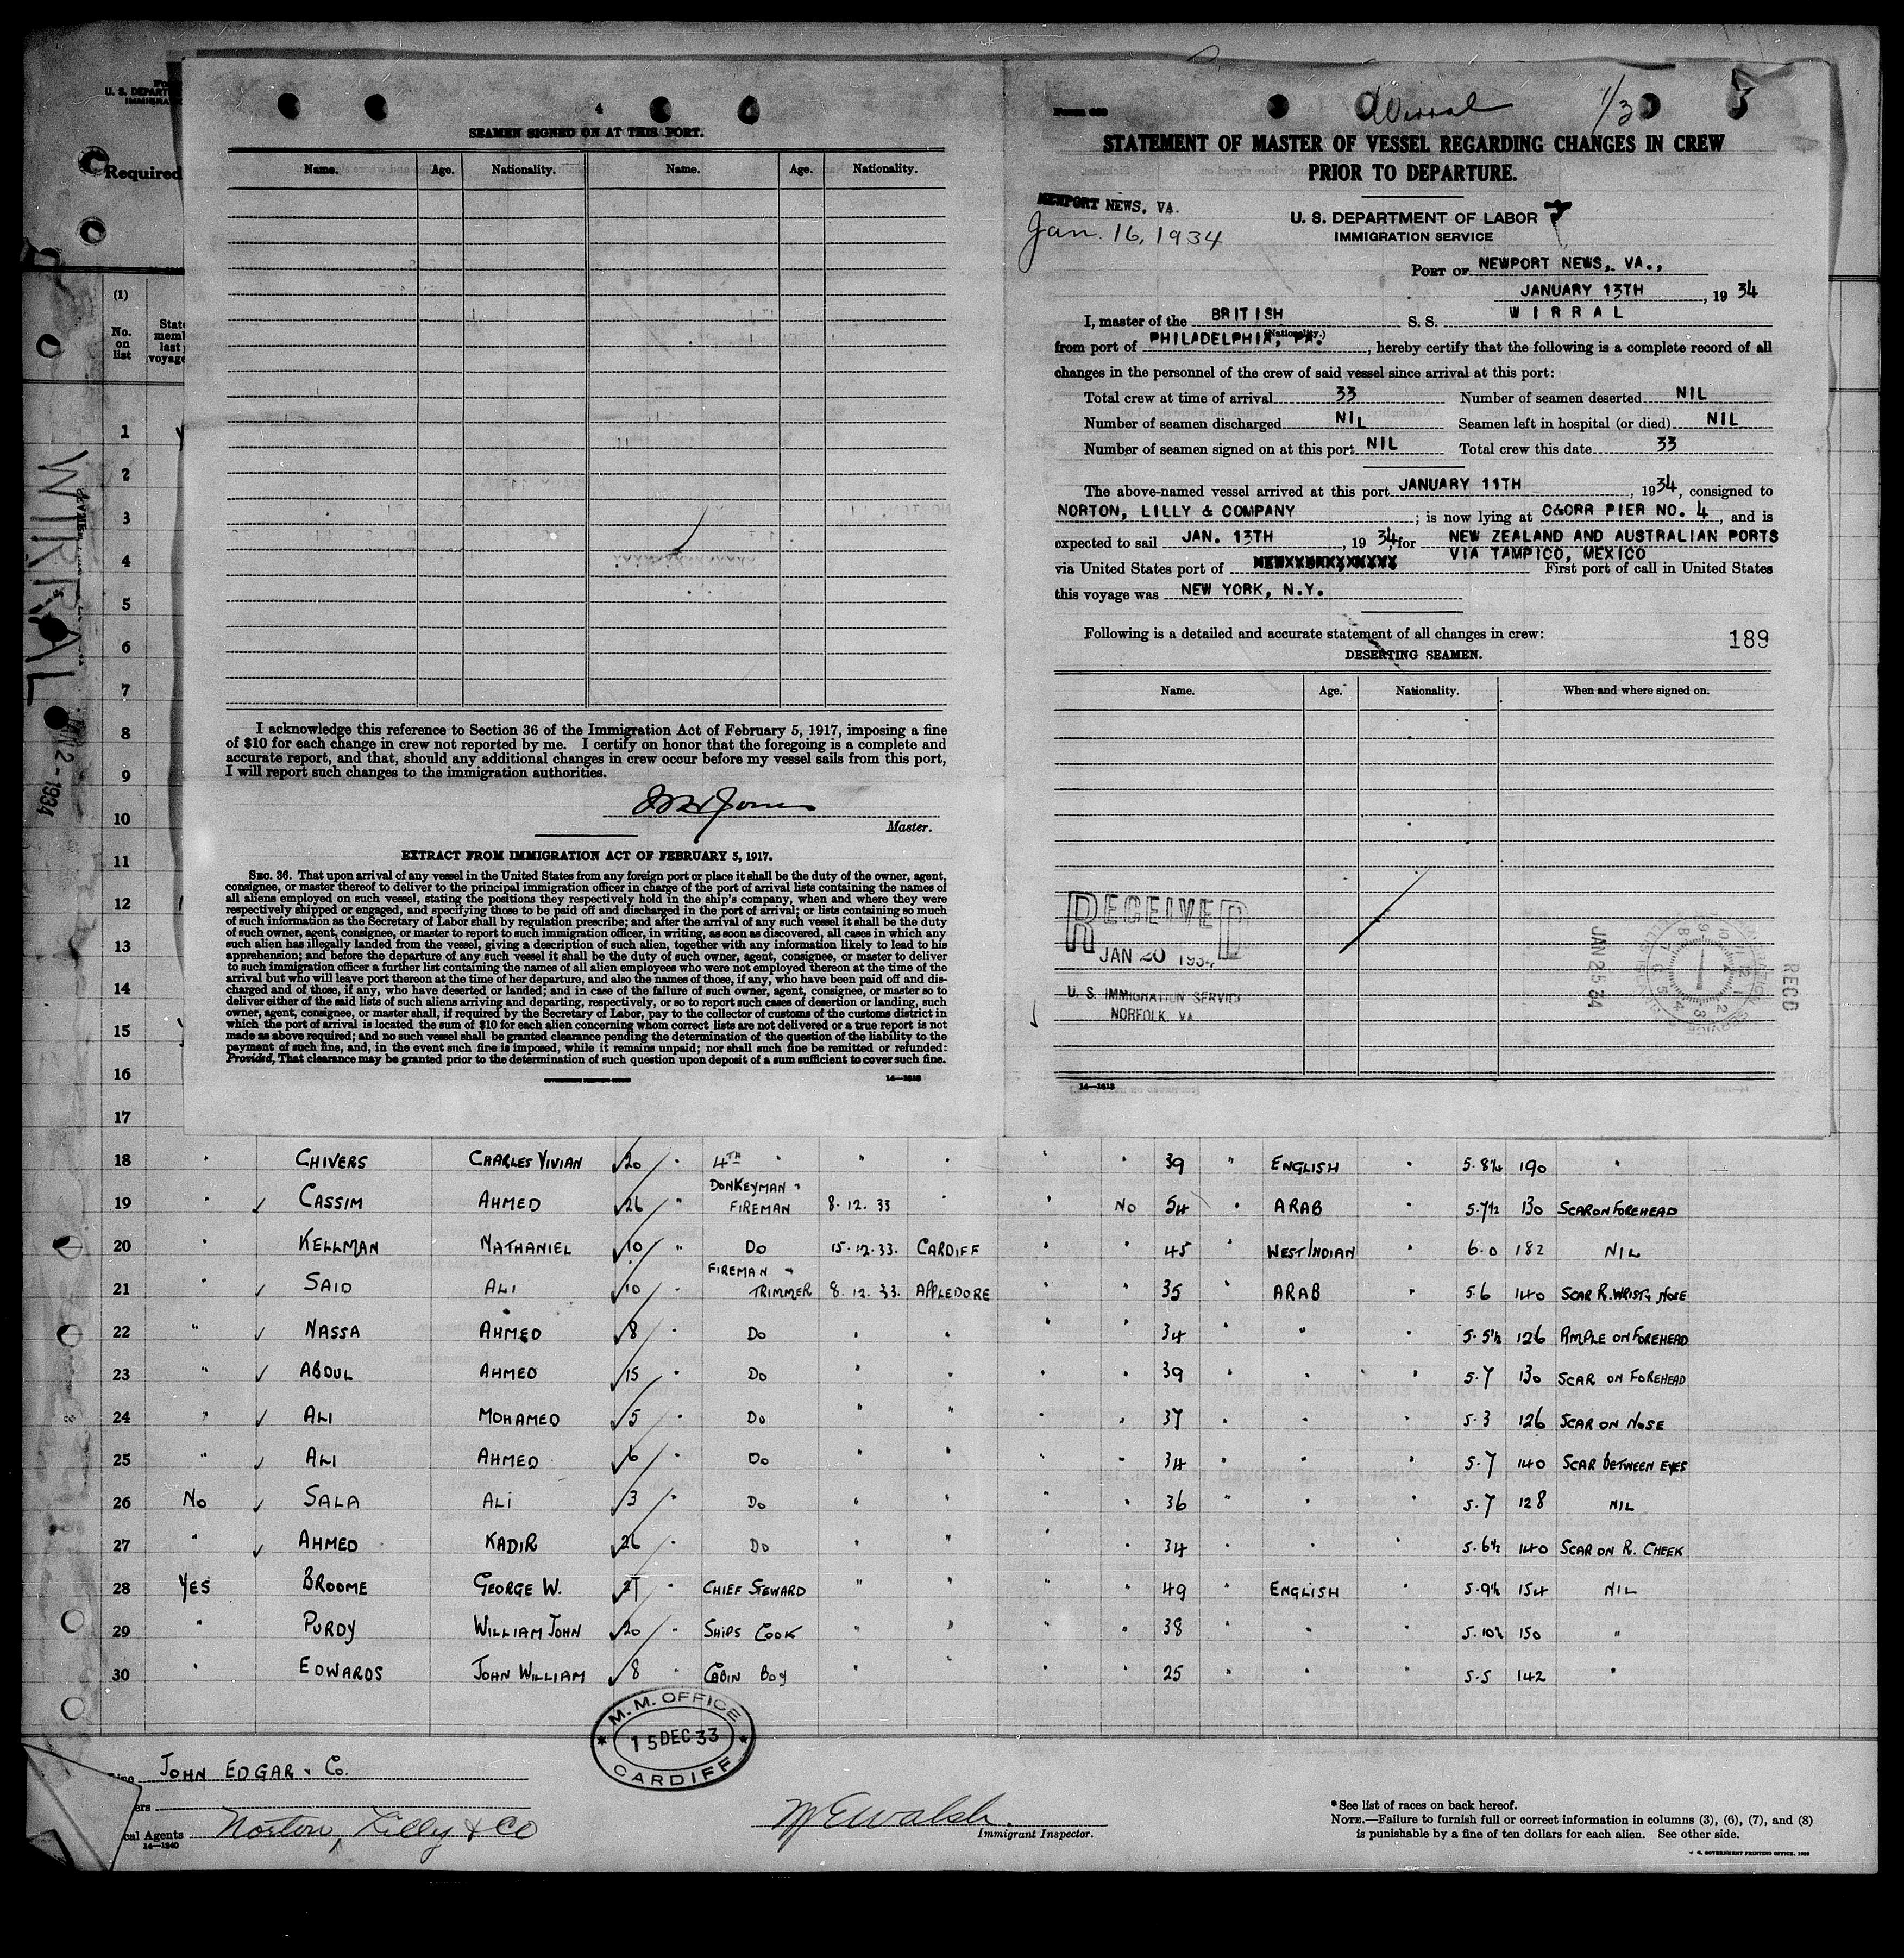 Required
(1)
No.
on
list
WIRRAL
4
SEAMEN SIGNED ON AT THIS PORT.
Name. Age. Nationality. Name. Age. Nationality.
I acknowledge this reference to Section 36 of the Immigration Act of February 5, 1917, imposing a fine
of $10 for each change in crew not reported by me. I certify on honor that the foregoing is a complete and
accurate report, and that, should any additional changes in crew occur before my vessel sails from this port,
I will report such changes to the immigration authorities.
Master.
EXTRACT FROM IMMIGRATION ACT OF FEBRUARY 5, 1917.
SEC. 36. That upon arrival of any vessel in the United States from any foreign port or place it shall be the duty of the owner, agent,
consignee, or master thereof to deliver to the principal immigration officer in charge of the port of arrival lists containing the names of
all aliens employed on such vessel, stating the positions they respectively hold in the ship's company, when and where they were
respectively shipped or engaged, and specifying those to be paid off and discharged in the port of arrival; or lists containing so much
of such information as the Secretary of Labor shall by regulation prescribe; and after the arrival of any such vessel it shall be the duty
of such owner, agent, consignee, or master to report to such immigration officer, in writing, as soon as discovered, all cases in which any
such alien has illegally landed from the vessel, giving a description of such alien, together with any information likely to lead to his
apprehension; and before the departure of any such vessel it shall be the duty of such owner, agent, consignee, or master to deliver
to such immigration officer a further list containing the names of all alien employees who were not employed thereon at the time of the
arrival but who will leave port thereon at the time of her departure, and also the names of those, if any, who have been paid off and dis-
charged and of those, if any, who have deserted or landed; and in case of the failure of such owner, agent, consignee, or master so to
deliver either of the said lists of such aliens arriving and departing, respectively, or so to report such cases of desertion or landing, such
owner, agent, consignee, or master shall, if required by the Secretary of Labor, pay to the collector of customs of the customs district in
which the port of arrival is located the sum of $10 for each alien concerning whom correct lists are not delivered or a true report is not
made as above required; and no such vessel shall be granted clearance pending the determination of the question of the liability to the
payment of such fine, and, in the event such fine is imposed, while it remains unpaid; nor shall such fine be remitted or refunded:
Provided, That clearance may be granted prior to the determination of such question upon deposit of a sum sufficient to cover such fine.
GOVERNMENT PRINTING OFFICE
14—1213
Wirral 1/3 5
STATEMENT OF MASTER OF VESSEL REGARDING CHANGES IN CREW
PRIOR TO DEPARTURE.
NEWPORT NEWS, VA.
Jan. 16, 1934
U. S. DEPARTMENT OF LABOR
IMMIGRATION SERVICE
PORT OF NEWPORT NEWS, VA.,
JANUARY 13TH, 1934
I, master of the BRITISH S. S. WIRRAL
(Nationality.)
from port of PHILADELPHIA, PA., hereby certify that the following is a complete record of all
changes in the personnel of the crew of said vessel since arrival at this port:
Total crew at time of arrival 33 Number of seamen deserted NIL
Number of seamen discharged NIL Seamen left in hospital (or died) NIL
Number of seamen signed on at this port NIL Total crew this date 33
The above-named vessel arrived at this port JANUARY 11TH, 1934, consigned to
NORTON, LILLY & COMPANY; is now lying at C&ORR PIER NO. 4, and is
expected to sail JAN. 13TH, 1934, for NEW ZEALAND AND AUSTRALIAN PORTS
VIA TAMPICO, MEXICO
via United States port of First port of call in United States
this voyage was NEW YORK, N.Y.
Following is a detailed and accurate statement of all changes in crew:
189
DESERTING SEAMEN.
Name. Age. Nationality. When and where signed on.
RECEIVED
JAN 20 1934
U. S. IMMIGRATION SERVICE
NORFOLK, VA
RECD
JAN 25 34
14—1213
1
2
3
4
5
6
7
8
9
10
11
12
13
14
15
16
17
18 " CHIVERS CHARLES VIVIAN 20 " 4TH " " " " " 39 " ENGLISH " 5.8¼ 190 "
19 " CASSIM AHMED 26 " DONKEYMAN & FIREMAN 8.12.33 " " No 54 " ARAB " 5.7½ 130 SCAR ON FOREHEAD
20 " KELLMAN NATHANIEL 10 " Do 15.12.33. CARDIFF " " 45 " WEST INDIAN " 6.0 182 NIL
21 " SAID ALI 10 " FIREMAN & TRIMMER 8.12.33. APPLEDORE " " 35 " ARAB " 5.6 140 SCAR R. WRIST & NOSE
22 " NASSA AHMED 8 " Do " " " " 34 " " " 5.5½ 126 PIMPLE ON FOREHEAD
23 " ABDUL AHMED 15 " Do " " " " 39 " " " 5.7 130 SCAR ON FOREHEAD
24 " ALI MOHAMED 5 " Do " " " " 37 " " " 5.3 126 SCAR ON NOSE
25 " ALI AHMED 6 " Do " " " " 34 " " " 5.7 140 SCAR BETWEEN EYES
26 No SALA ALI 3 " Do " " " " 36 " " " 5.7 128 NIL
27 " AHMED KADIR 26 " Do " " " " 34 " " " 5.6½ 140 SCAR ON R. CHEEK
28 YES BROOME GEORGE W. 27 " CHIEF STEWARD " " " " 49 " ENGLISH " 5.9½ 154 NIL
29 " PURDY WILLIAM JOHN 20 " SHIPS COOK " " " " 38 " " " 5.10½ 150 "
30 " EDWARDS JOHN WILLIAM 8 " CABIN BOY " " " " 25 " " " 5.5 142 "
M. M. OFFICE
15 DEC 33
CARDIFF
JOHN EDGAR & Co.
Norton, Lilly & Co
cal Agents
14—1240
W E Walsh.
Immigrant Inspector.
*See list of races on back hereof.
NOTE.—Failure to furnish full or correct information in columns (3), (6), (7), and (8)
is punishable by a fine of ten dollars for each alien. See other side.
GOVERNMENT PRINTING OFFICE